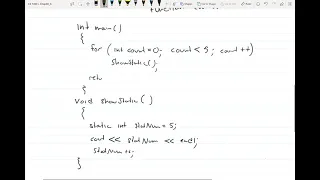 int main()
{
for (int count=0; count < 5; count++)
showStatic();
retu
}
void showStatic()
{
static int statNum = 5;
cout << statNum << endl;
statNum++;
}